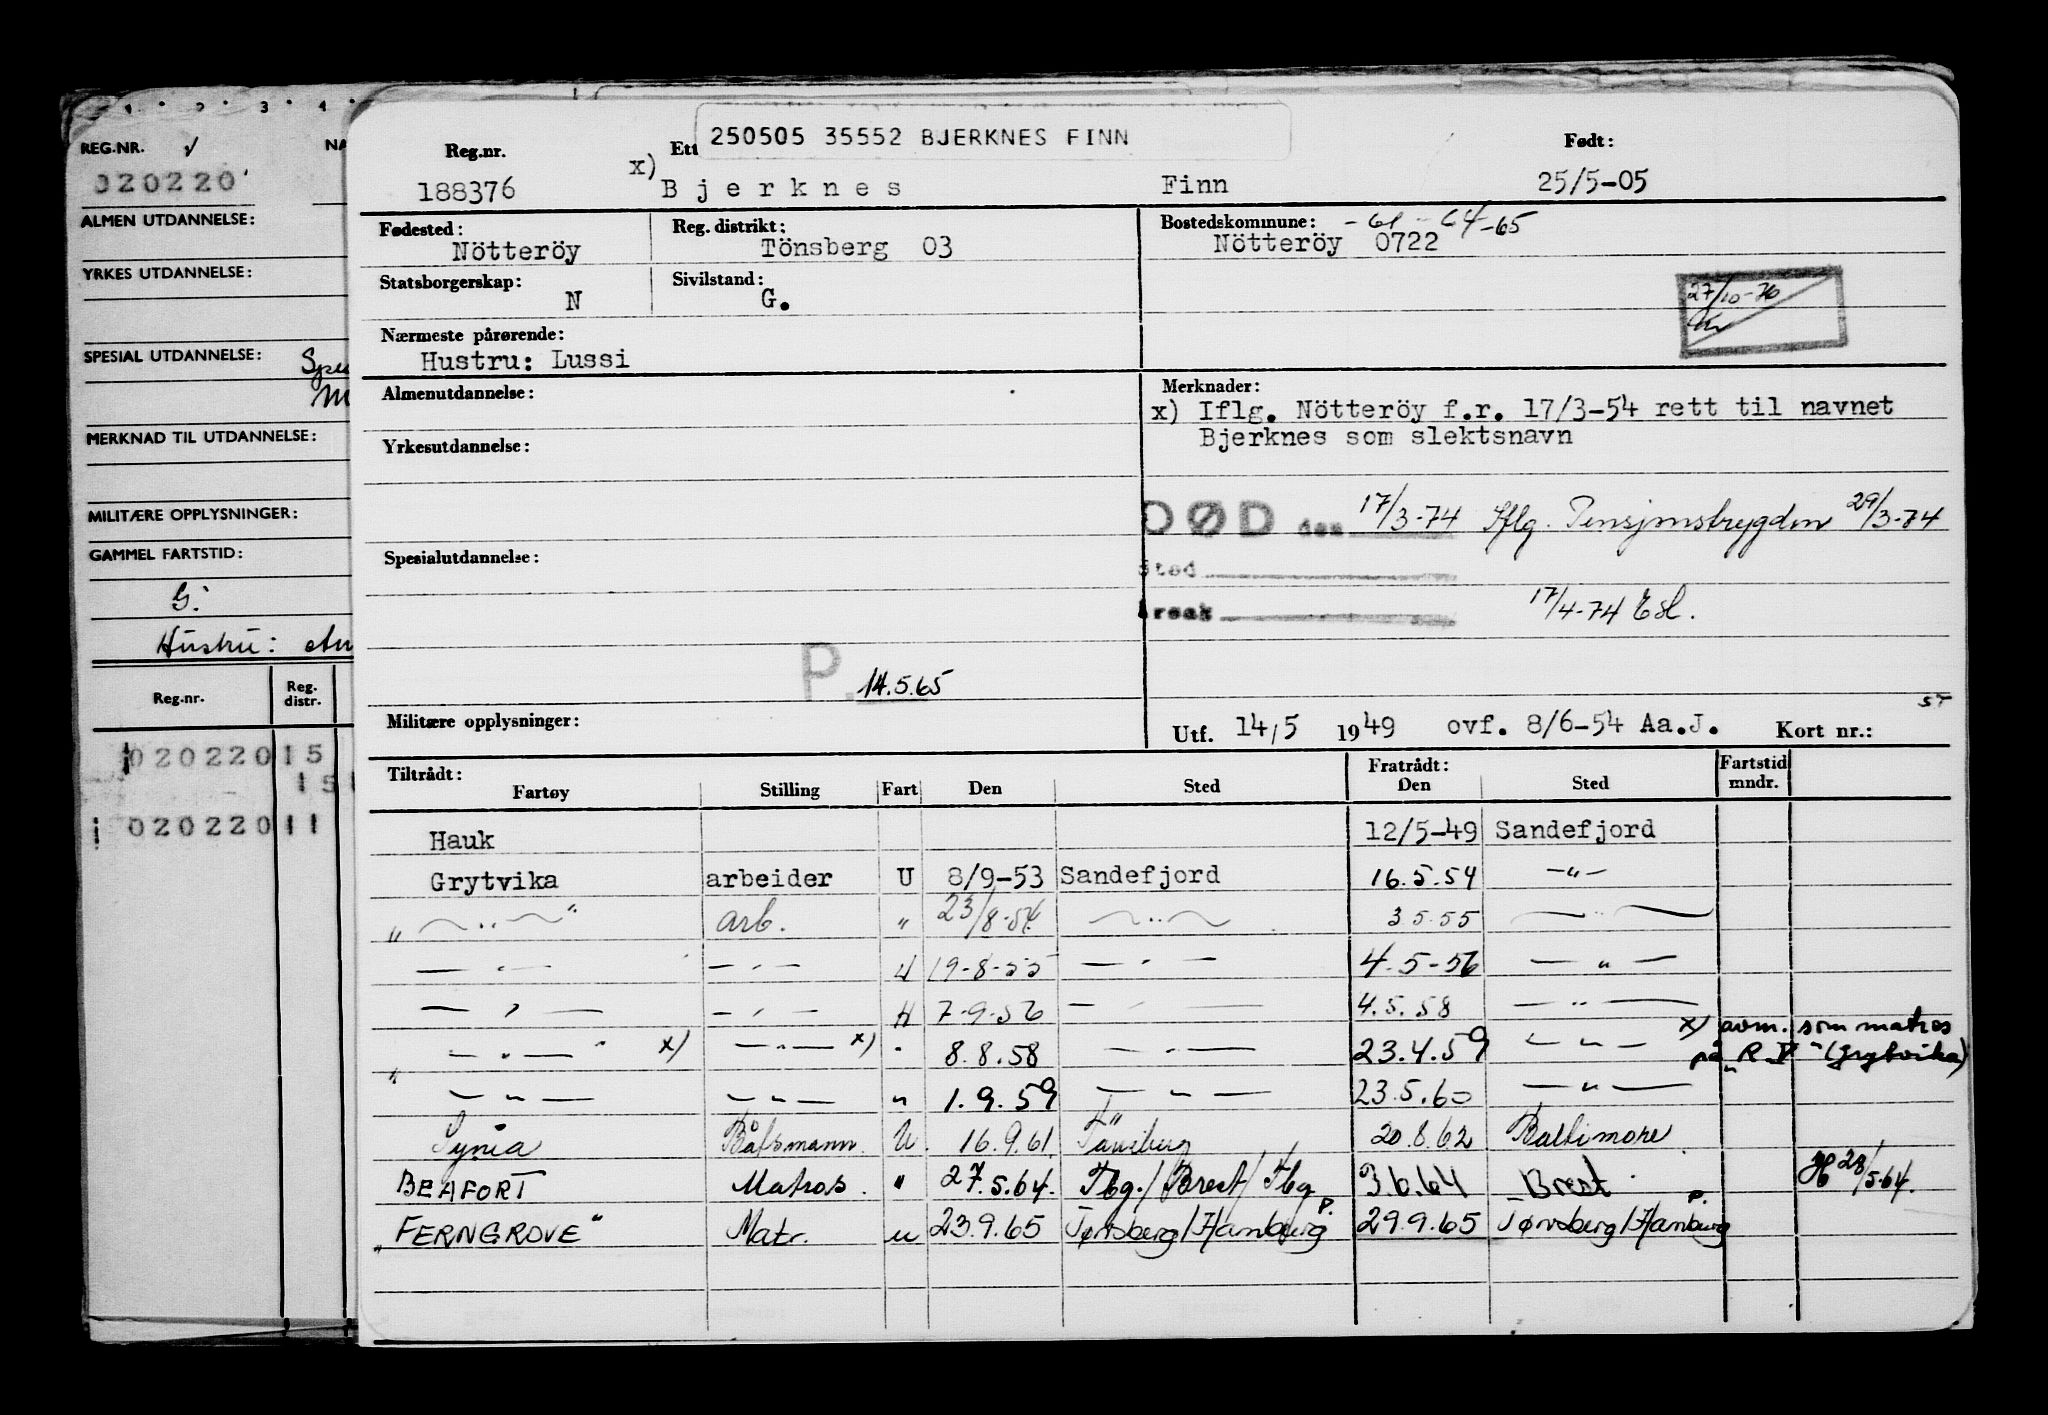 1 2 3 4
REG.NR.
020220
ALMEN UTDANNELSE:
YRKES UTDANNELSE:
SPESIAL UTDANNELSE:
MERKNAD TIL UTDANNELSE:
MILITÆRE OPPLYSNINGER:
GAMMEL FARTSTID:
G.
Hustru:
Reg.nr. Reg. distr.
020220 15
15
020220 11
250505 35552 BJERKNES FINN
Reg.nr. Født:
188376 x) Bjerknes Finn 25/5-05
Fødested: Reg. distrikt: Bostedskommune: -61-64-65
Nötteröy Tönsberg 03 Nötteröy 0722
Statsborgerskap: Sivilstand:
N G.
27/10-76
Nærmeste pårørende:
Hustru: Lussi
Almenutdannelse: Merknader:
x) Iflg. Nötteröy f.r. 17/3-54 rett til navnet
Bjerknes som slektsnavn
Yrkesutdannelse:
DØD den 17/3-74 Iflg. Pensjonstrygden 29/3-74
Spesialutdannelse:
Sted
Årsak 17/4-74 Esl.
P. 14.5.65
Militære opplysninger: Utf. 14/5 1949 ovf. 8/6-54 Aa.J. Kort nr.:
Tiltrådt: Fratrådt: Fartstid
Fartøy Stilling Fart Den Sted Den Sted mndr.
Hauk 12/5-49 Sandefjord
Grytvika arbeider U 8/9-53 Sandefjord 16.5.54 -"-
" -"- " arb. " 23/8-54 -"- 3.5.55 -"-
-"- -"- H 19-8-55 -"- 4.5-56 -"-
-"- -"- H 7-9-56 -"- 4.5.58 -"-
-"- x) -"- x) " 8.8.58 -"- 23.4.59 -"- x) avm. som matros
på "R V" (Grytvika)
-"- -"- " 1.9.59 -"- 23.5.60 -"-
Synia Båtsmann U. 16.9.61 Tönsberg 20.8.62 Baltimore
BEAFORT Matros. " 27.5.64. Tbg./Brest/Tbg 3.6.64 Brest 28/5.64.
"FERNGROVE" Matr. u 23.9.65 Tønsberg/Hamburg P. 29.9.65 Tønsberg/Hamburg P.